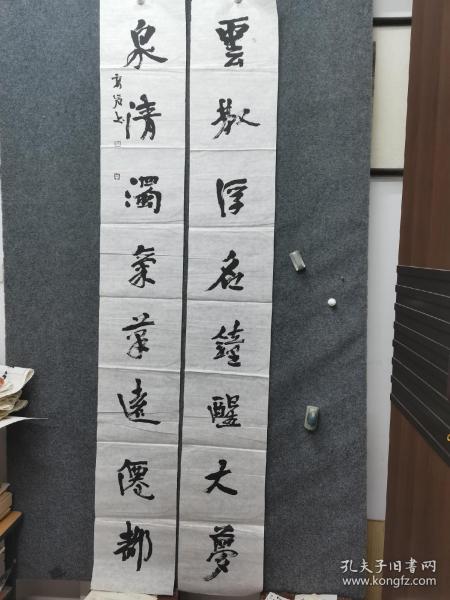 雲散浮名鐘醒大夢
泉清濁氣草遠僊都
孔夫子旧书网
www.kongfz.com